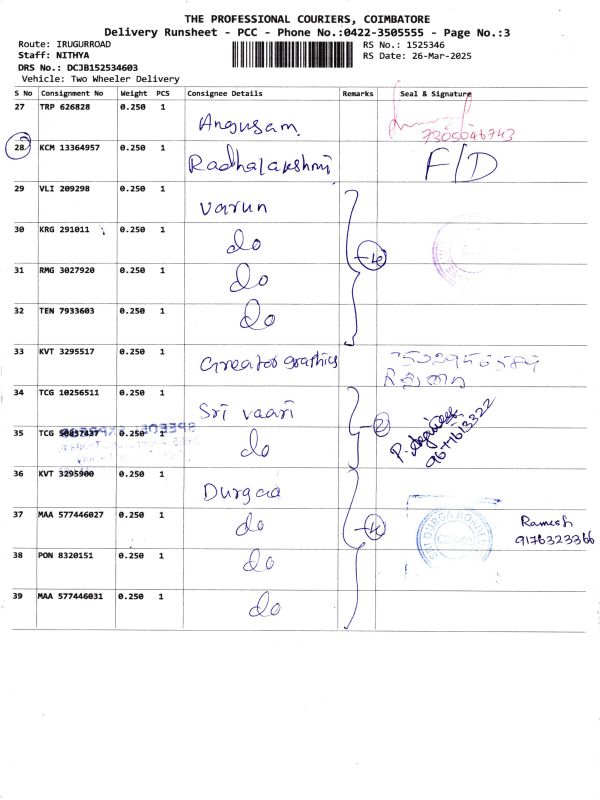 THE PROFESSIONAL COURIERS, COIMBATORE
Delivery Runsheet - PCC - Phone No.:0422-3505555 - Page No.:3
Route: IRUGURROAD
RS No.: 1525346
Staff: NITHYA
RS Date: 26-Mar-2025
DRS No.: DCJB152534603
Vehicle: Two Wheeler Delivery
S No Consignment No Weight PCS Consignee Details Remarks Seal & Signature
27 TRP 626828 0.250 1 Angusam 7305046743
28 KCM 13364957 0.250 1 Radhalakshmi F/D
29 VLI 209298 0.250 1 Varun
30 KRG 291011 0.250 1 do
31 RMG 3027920 0.250 1 do
32 TEN 7933603 0.250 1 do
33 KVT 3295517 0.250 1 Creator graphics
34 TCG 10256511 0.250 1 Sri vaari 2
35 TCG 0.250 1 do
P. 
36 KVT 3295900 0.250 1 Durgaa
37 MAA 577446027 0.250 1 do Ramesh
9176323366
38 PON 8320151 0.250 1 do
39 MAA 577446031 0.250 1 do